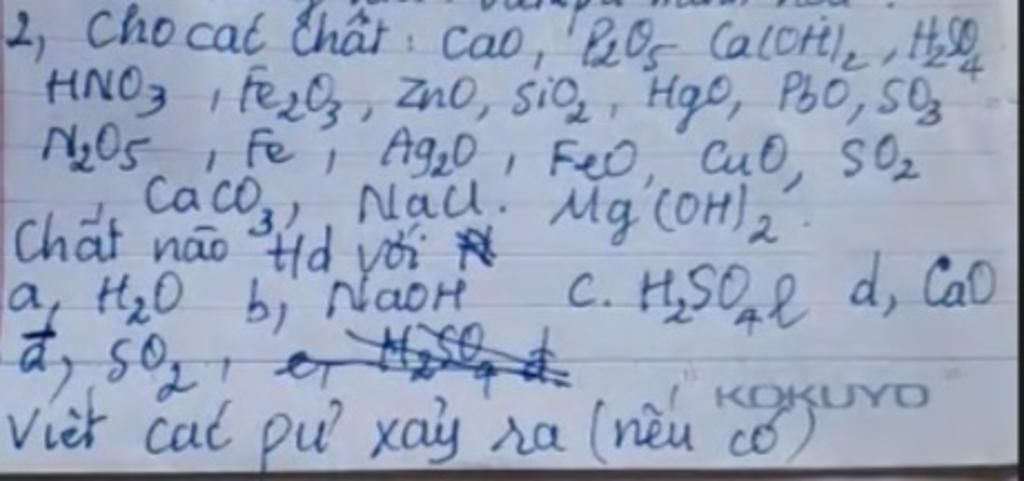 2, Cho các chất: CaO, P2O5 Ca(OH)2, H2SO4
HNO3, Fe2O3, ZnO, SiO2, HgO, PbO, SO3
N2O5, Fe, Ag2O, FeO, CuO, SO2
, CaCO3, NaCl. Mg(OH)2.
Chất nào td với
a, H2O b, NaOH c. H2SO4 l d, CaO
đ, SO2,
Viết các pư xảy ra (nếu có)
KOKUYO